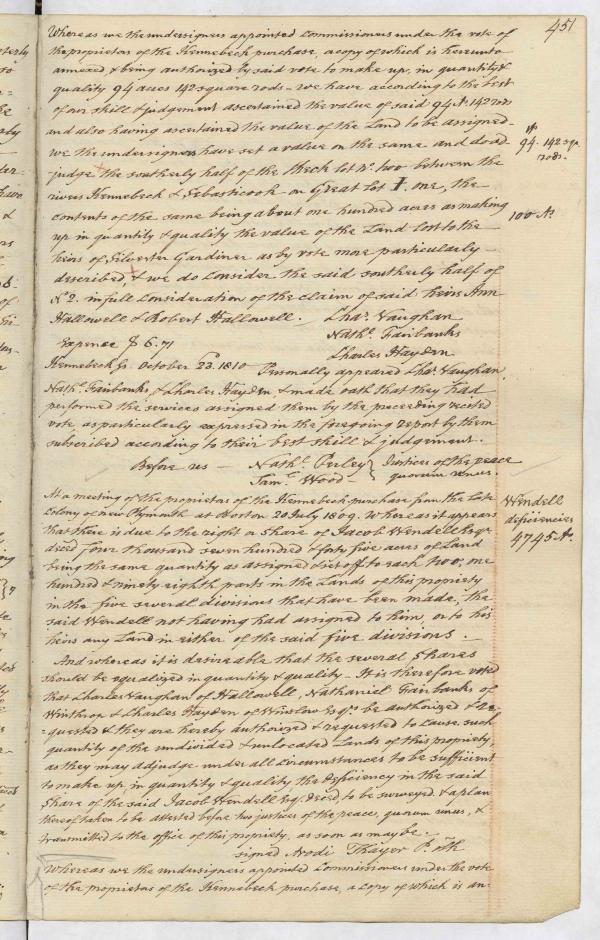 451
Whereas we the undersigners appointed Commissioners under the vote of
the proprietors of the Kennebeck purchase, a copy of which is hereunto
annexed, & being authorized by said vote to make up, in quantity &
quality 94 acres 142 square rods - we have according to the best
of our skill & judgement ascertained the value of said 94 As. 142 rods
and also having ascertained the value of the Land to be assigned -
we the undersigners have set a value on the same and do ad-
judge the southerly half of the Neck lot No. two between the
rivers Kennebeck & Sebasticook on Great Lot I. one, the
contents of the same being about one hundred acres as making
up in quantity & quality the value of the Land lost to the
heirs of Silvester Gardiner as by vote more particularly -
described, & we do consider the said southerly half of
No. 2. in full consideration of the claim of said heirs Ann
Hallowell & Robert Hallowell. Chas. Vaughan
Nathl. Fairbanks
Expence $ 6.71 Charles Hayden
Kennebeck Ss. October 23. 1810 Personally appeared Chas. Vaughan,
Nathl. Fairbanks, & Charles Hayden, & made oath that they had
performed the services assigned them by the preceeding recited
vote, as particularly expressed in the foregoing report by them
subscribed according to their best skill & judgement.
Before us - Nathl. Perley } Justices of the peace
Saml. Wood - } quorum unus.
At a meeting of the proprietors of the Kennebeck purchase from the late
Colony of new Plymouth at Boston 20 July 1809. Whereas it appears
that there is due to the right or share of Jacob Wendell Esqr
deced four thousand seven hundred & forty five acres of Land
being the same quantity as assigned & set off to each two, one
hundred & ninety eighth parts in the Lands of this propriety
in the five several divisions that have been made, the
said Wendell not having had assigned to him, or to his
heirs any Land in either of the said five divisions. -
And whereas it is desireable that the several Shares
should be equalized in quantity & quality - It is therefore voted
that Charles Vaughan of Hallowell, Nathaniel Fairbanks of
Winthrop & Charles Hayden of Winslow Esqrs be authorized & re-
-quested & they are hereby authorized & requested to cause such
quantity of the undivided & unlocated Lands of this propriety,
as they may adjudge under all circumstances to be sufficient
to make up in quantity & quality the deficiency in the said
Share of the said Jacob Wendell Esq. deced, to be surveyed & a plan
thereof taken to be attested before two justices of the peace, quorum unus, &
transmitted to the office of this propriety, as soon as may be. -
signed Arodi Thayer P. Clk
Whereas we the undersigners appointed Commissioners under the vote
of the proprietors of the Kennebeck purchase, a copy of which is an-
94. 142 sqr
rods.
100 As
Wendell
deficiencies
4745 As